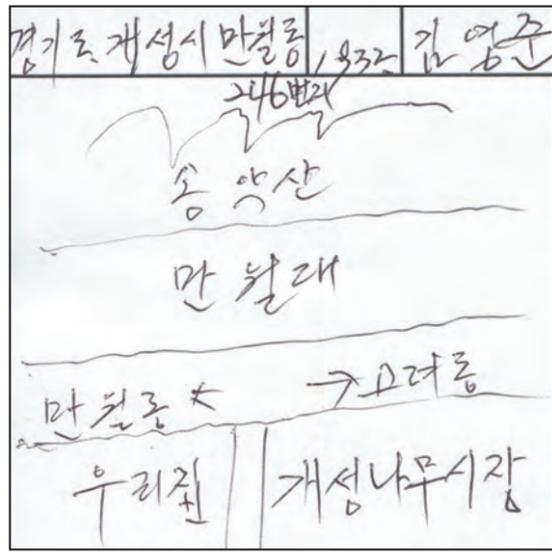 경기도 개성시 만월동 1932 김영준
246번지
송악산
만월대
만월동 ← → 고려동
우리집 개성나무시장